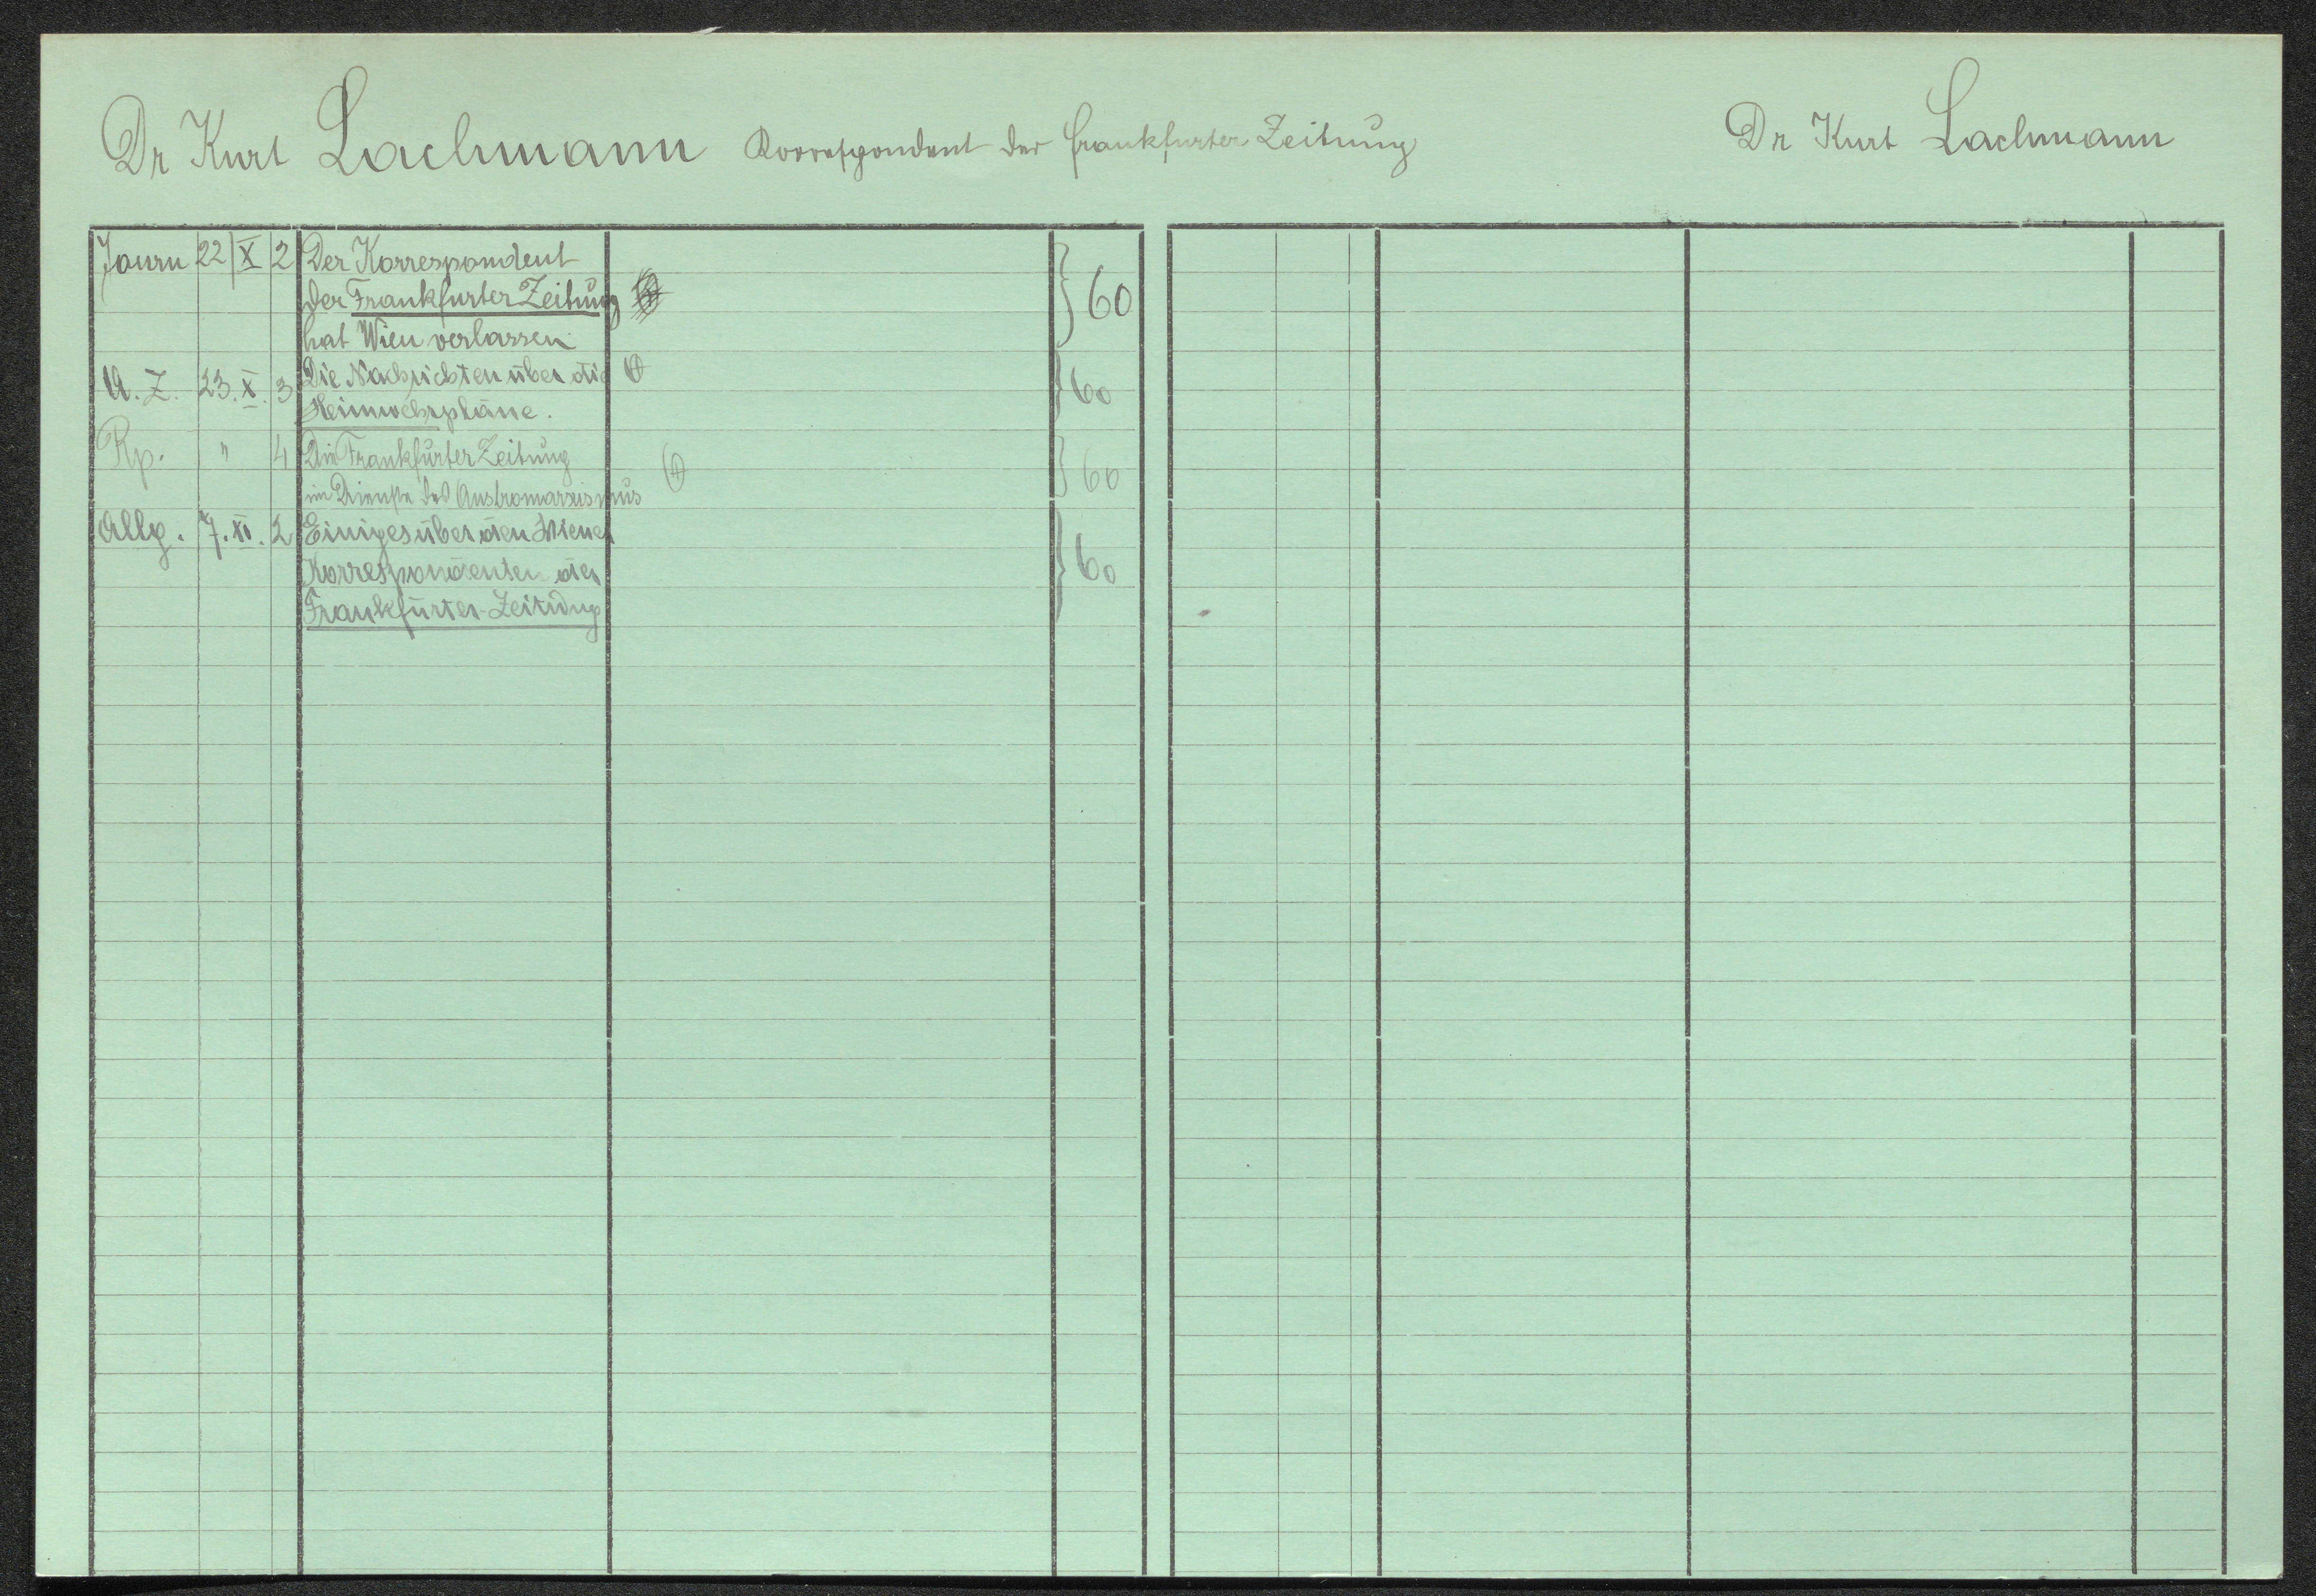 Dr Kurt Lachmann Korrespondent der Frankfurter Zeitung
Dr Kurt Lachmann
Journ 22 X 2 Der Korrespondent
der Frankfurter Zeitung
hat Wien verlassen
60
A. Z. 23. X. 3 Die Nachrichten über die
Heimwehrpläne.
60
Rp. " 4 Die Frankfurter Zeitung
im Dienste des Austromarxismus
60
Allg. 7. XI. 2 Einiges über den Wiener
Korrespondenten der
Frankfurter-Zeitung
60